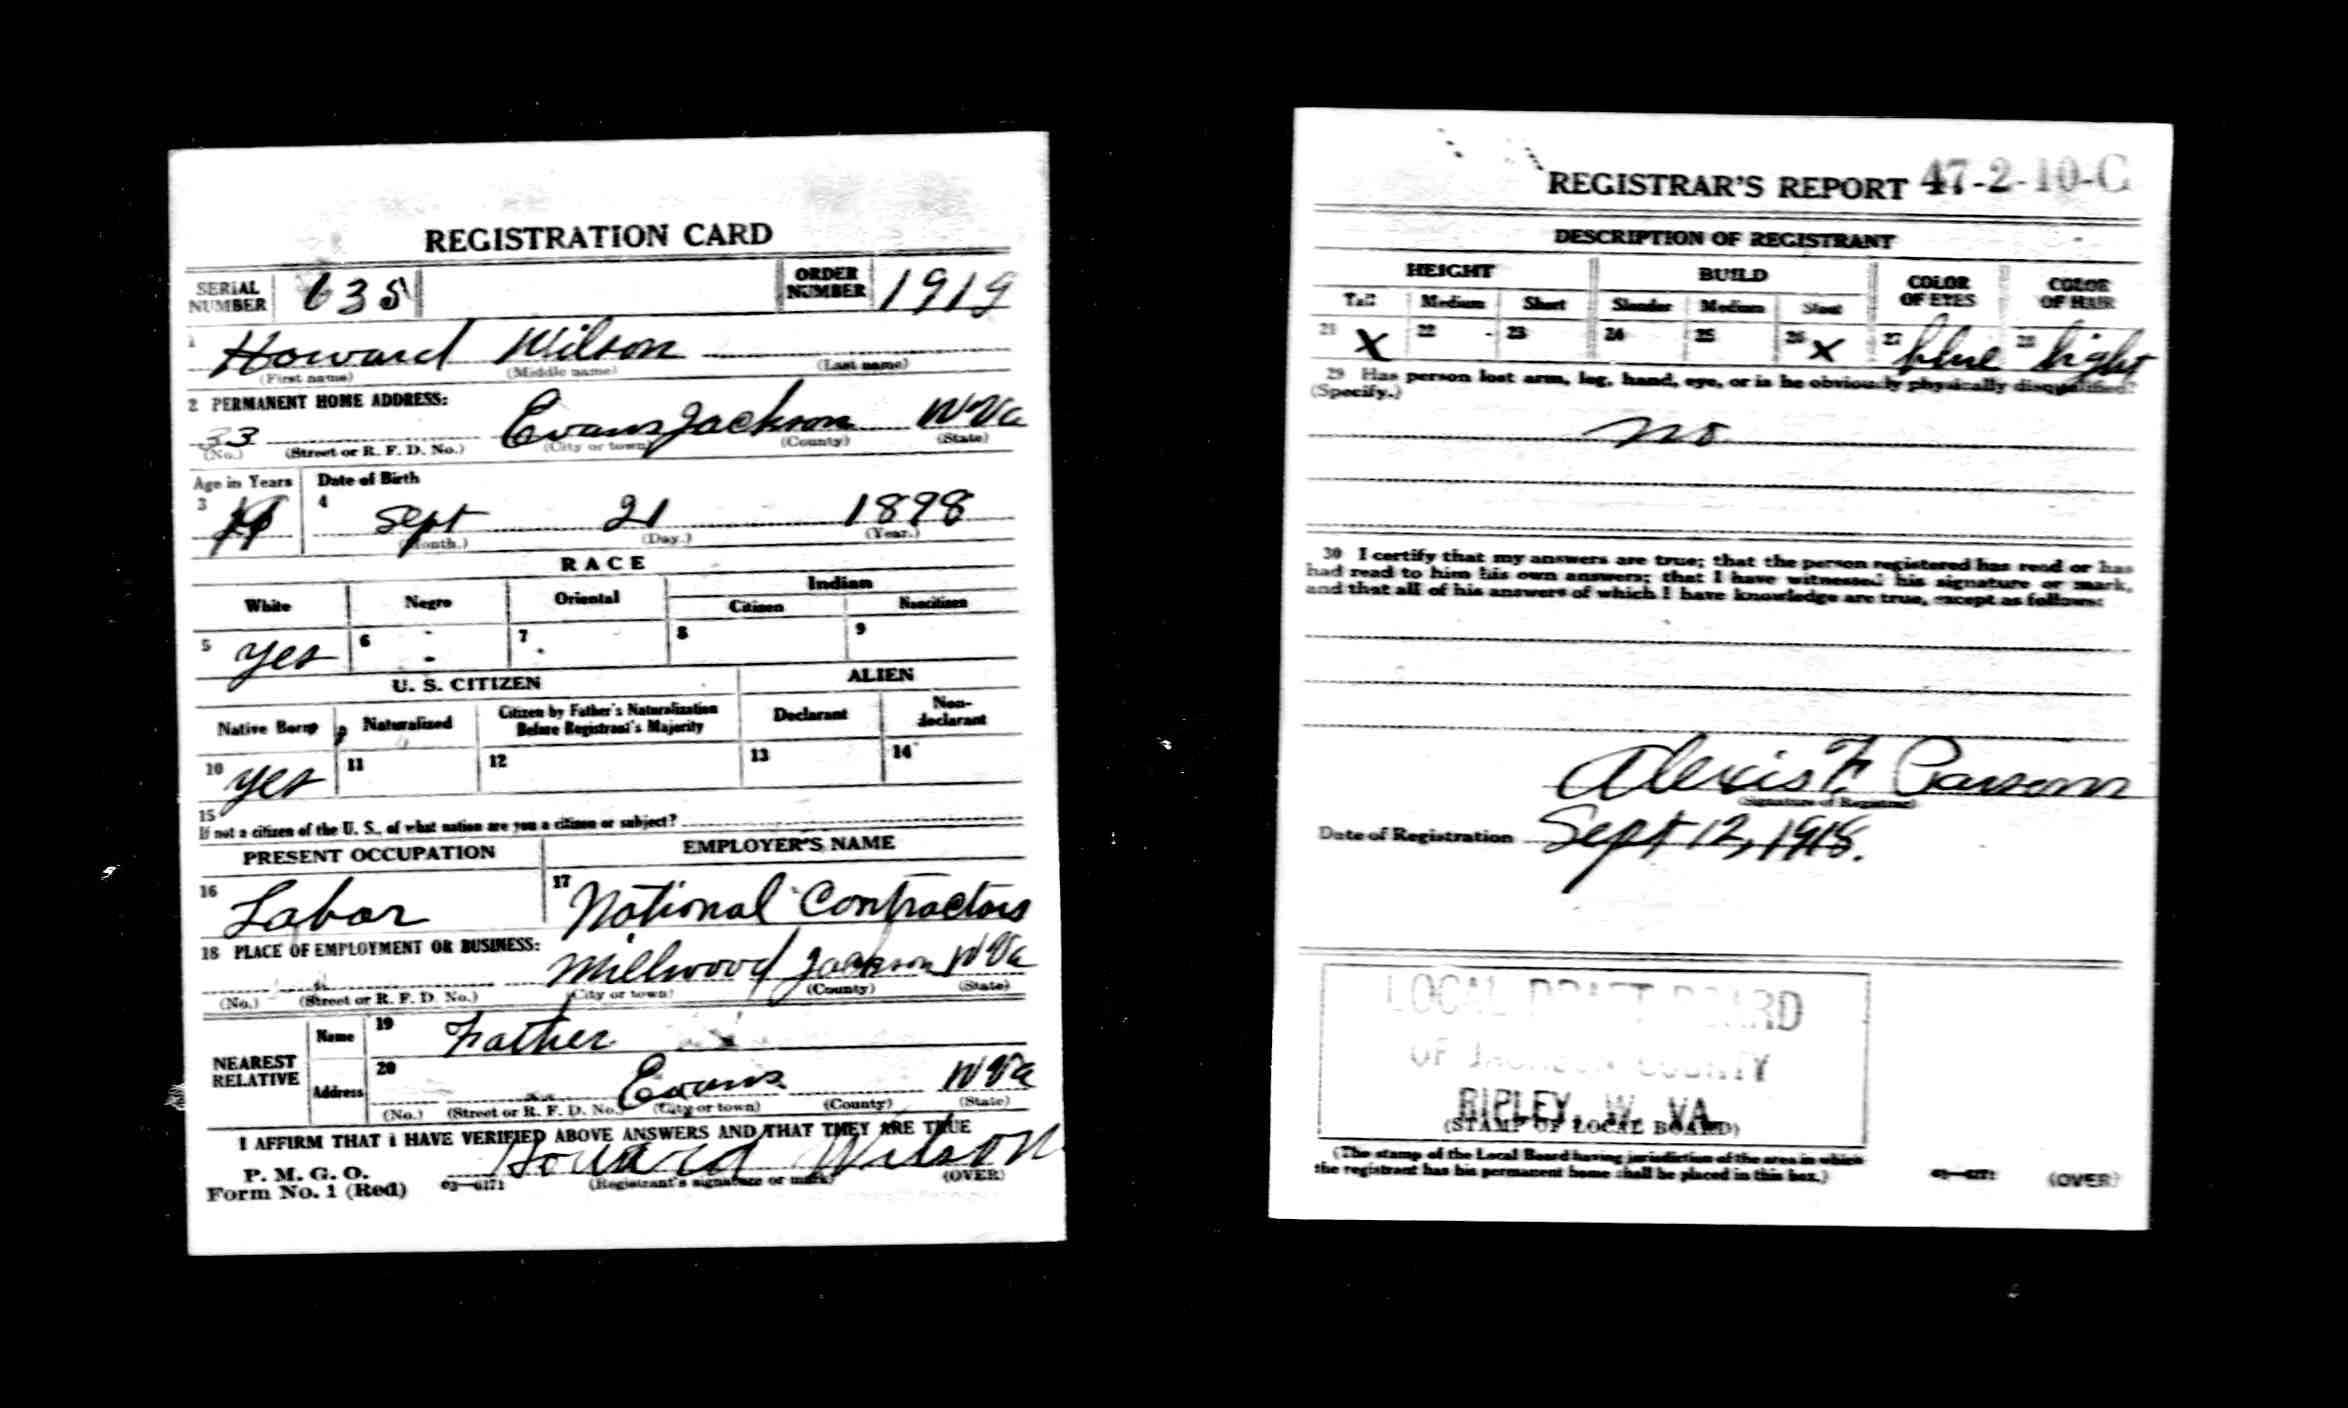 REGISTRATION CARD
SERIAL NUMBER 635 ORDER NUMBER 1919
1 Howard Wilson
(First name) (Middle name) (Last name)
2 PERMANENT HOME ADDRESS:
33 Evans Jackson W Va
(No.) (Street or R. F. D. No.) (City or town) (County) (State)
Age in Years Date of Birth
3 4 Sept 21 1898
(Month.) (Day.) (Year.)
RACE
White Negro Oriental Indian
Citizen Noncitizen
5 yes 6 7 8 9
U. S. CITIZEN ALIEN
Native Born Naturalized Citizen by Father's Naturalization Before Registrant's Majority Declarant Non-declarant
10 yes 11 12 13 14
15
If not a citizen of the U. S., of what nation are you a citizen or subject?
PRESENT OCCUPATION EMPLOYER'S NAME
16 Labor 17 National Contractors
18 PLACE OF EMPLOYMENT OR BUSINESS:
Millwood Jackson W Va
(No.) (Street or R. F. D. No.) (City or town) (County) (State)
NEAREST RELATIVE Name 19 Father
Address 20 Evans W Va
(No.) (Street or R. F. D. No.) (City or town) (County) (State)
I AFFIRM THAT I HAVE VERIFIED ABOVE ANSWERS AND THAT THEY ARE TRUE
P. M. G. O.
Form No. 1 (Red) 03—6171 Howard Wilson
(Registrant's signature or mark) (OVER)
REGISTRAR'S REPORT 47-2-10-C
DESCRIPTION OF REGISTRANT
HEIGHT BUILD COLOR OF EYES COLOR OF HAIR
Tall Medium Short Slender Medium Stout
21 X 22 23 24 25 26 X 27 blue 28 light
29 Has person lost arm, leg, hand, eye, or is he obviously physically disqualified?
(Specify.)
no
30 I certify that my answers are true; that the person registered has read or has
had read to him his own answers; that I have witnessed his signature or mark,
and that all of his answers of which I have knowledge are true, except as follows:
Alexis F. Parsons
(Signature of Registrar)
Date of Registration Sept 12, 1918.
LOCAL DRAFT BOARD
OF JACKSON COUNTY
RIPLEY, W. VA.
(STAMP OF LOCAL BOARD)
(The stamp of the Local Board having jurisdiction of the area in which
the registrant has his permanent home shall be placed in this box.)
03—6171 (OVER)